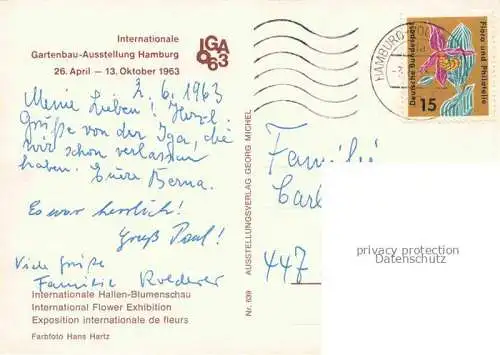 Internationale
Gartenbau-Ausstellung Hamburg
26. April — 13. Oktober 1963
IGA 63
2. 6. 1963
Meine Lieben! Herzl.
Grüße von der Iga, die
wir schon verlassen
haben. Eure Berna.
Es war herrlich!
Gruß Paul!
Viele Grüße
Familie
Internationale Hallen-Blumenschau
International Flower Exhibition
Exposition internationale de fleurs
Farbfoto Hans Hartz
Nr. 639 AUSSTELLUNGSVERLAG GEORG MICHEL
HAMBURG
Deutsche Bundespost
Flora und Philatelie
15
Familie
Carl
447
privacy protection
Datenschutz